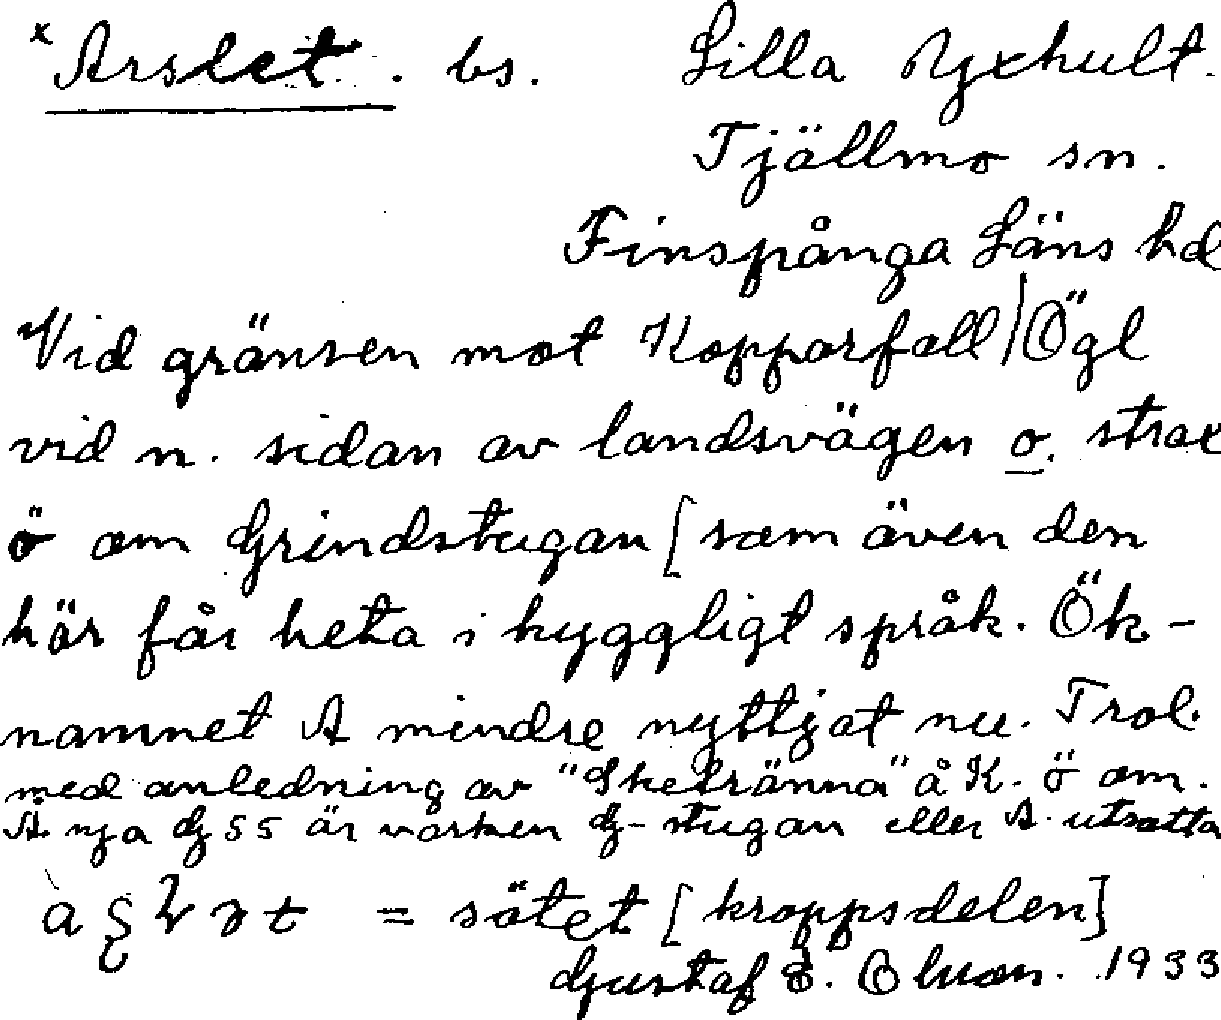 x Arslet. bs. Lilla Yxhult.
Tjällmo sn.
Finspånga Läns hd
Vid gränsen mot Kopparfall/Ögl
vid n. sidan av landsvägen o. strax
ö om Grindstugan [som även den
här får heta i hyggligt språk. Ök-
namnet A mindre nyttjat nu. Trol.
med anledning av "Skelränna" å K. ö om.
Å nya G 55 är varken G-stugan eller A. utsatta
= sätet [kroppsdelen]
Gustaf E. 1933